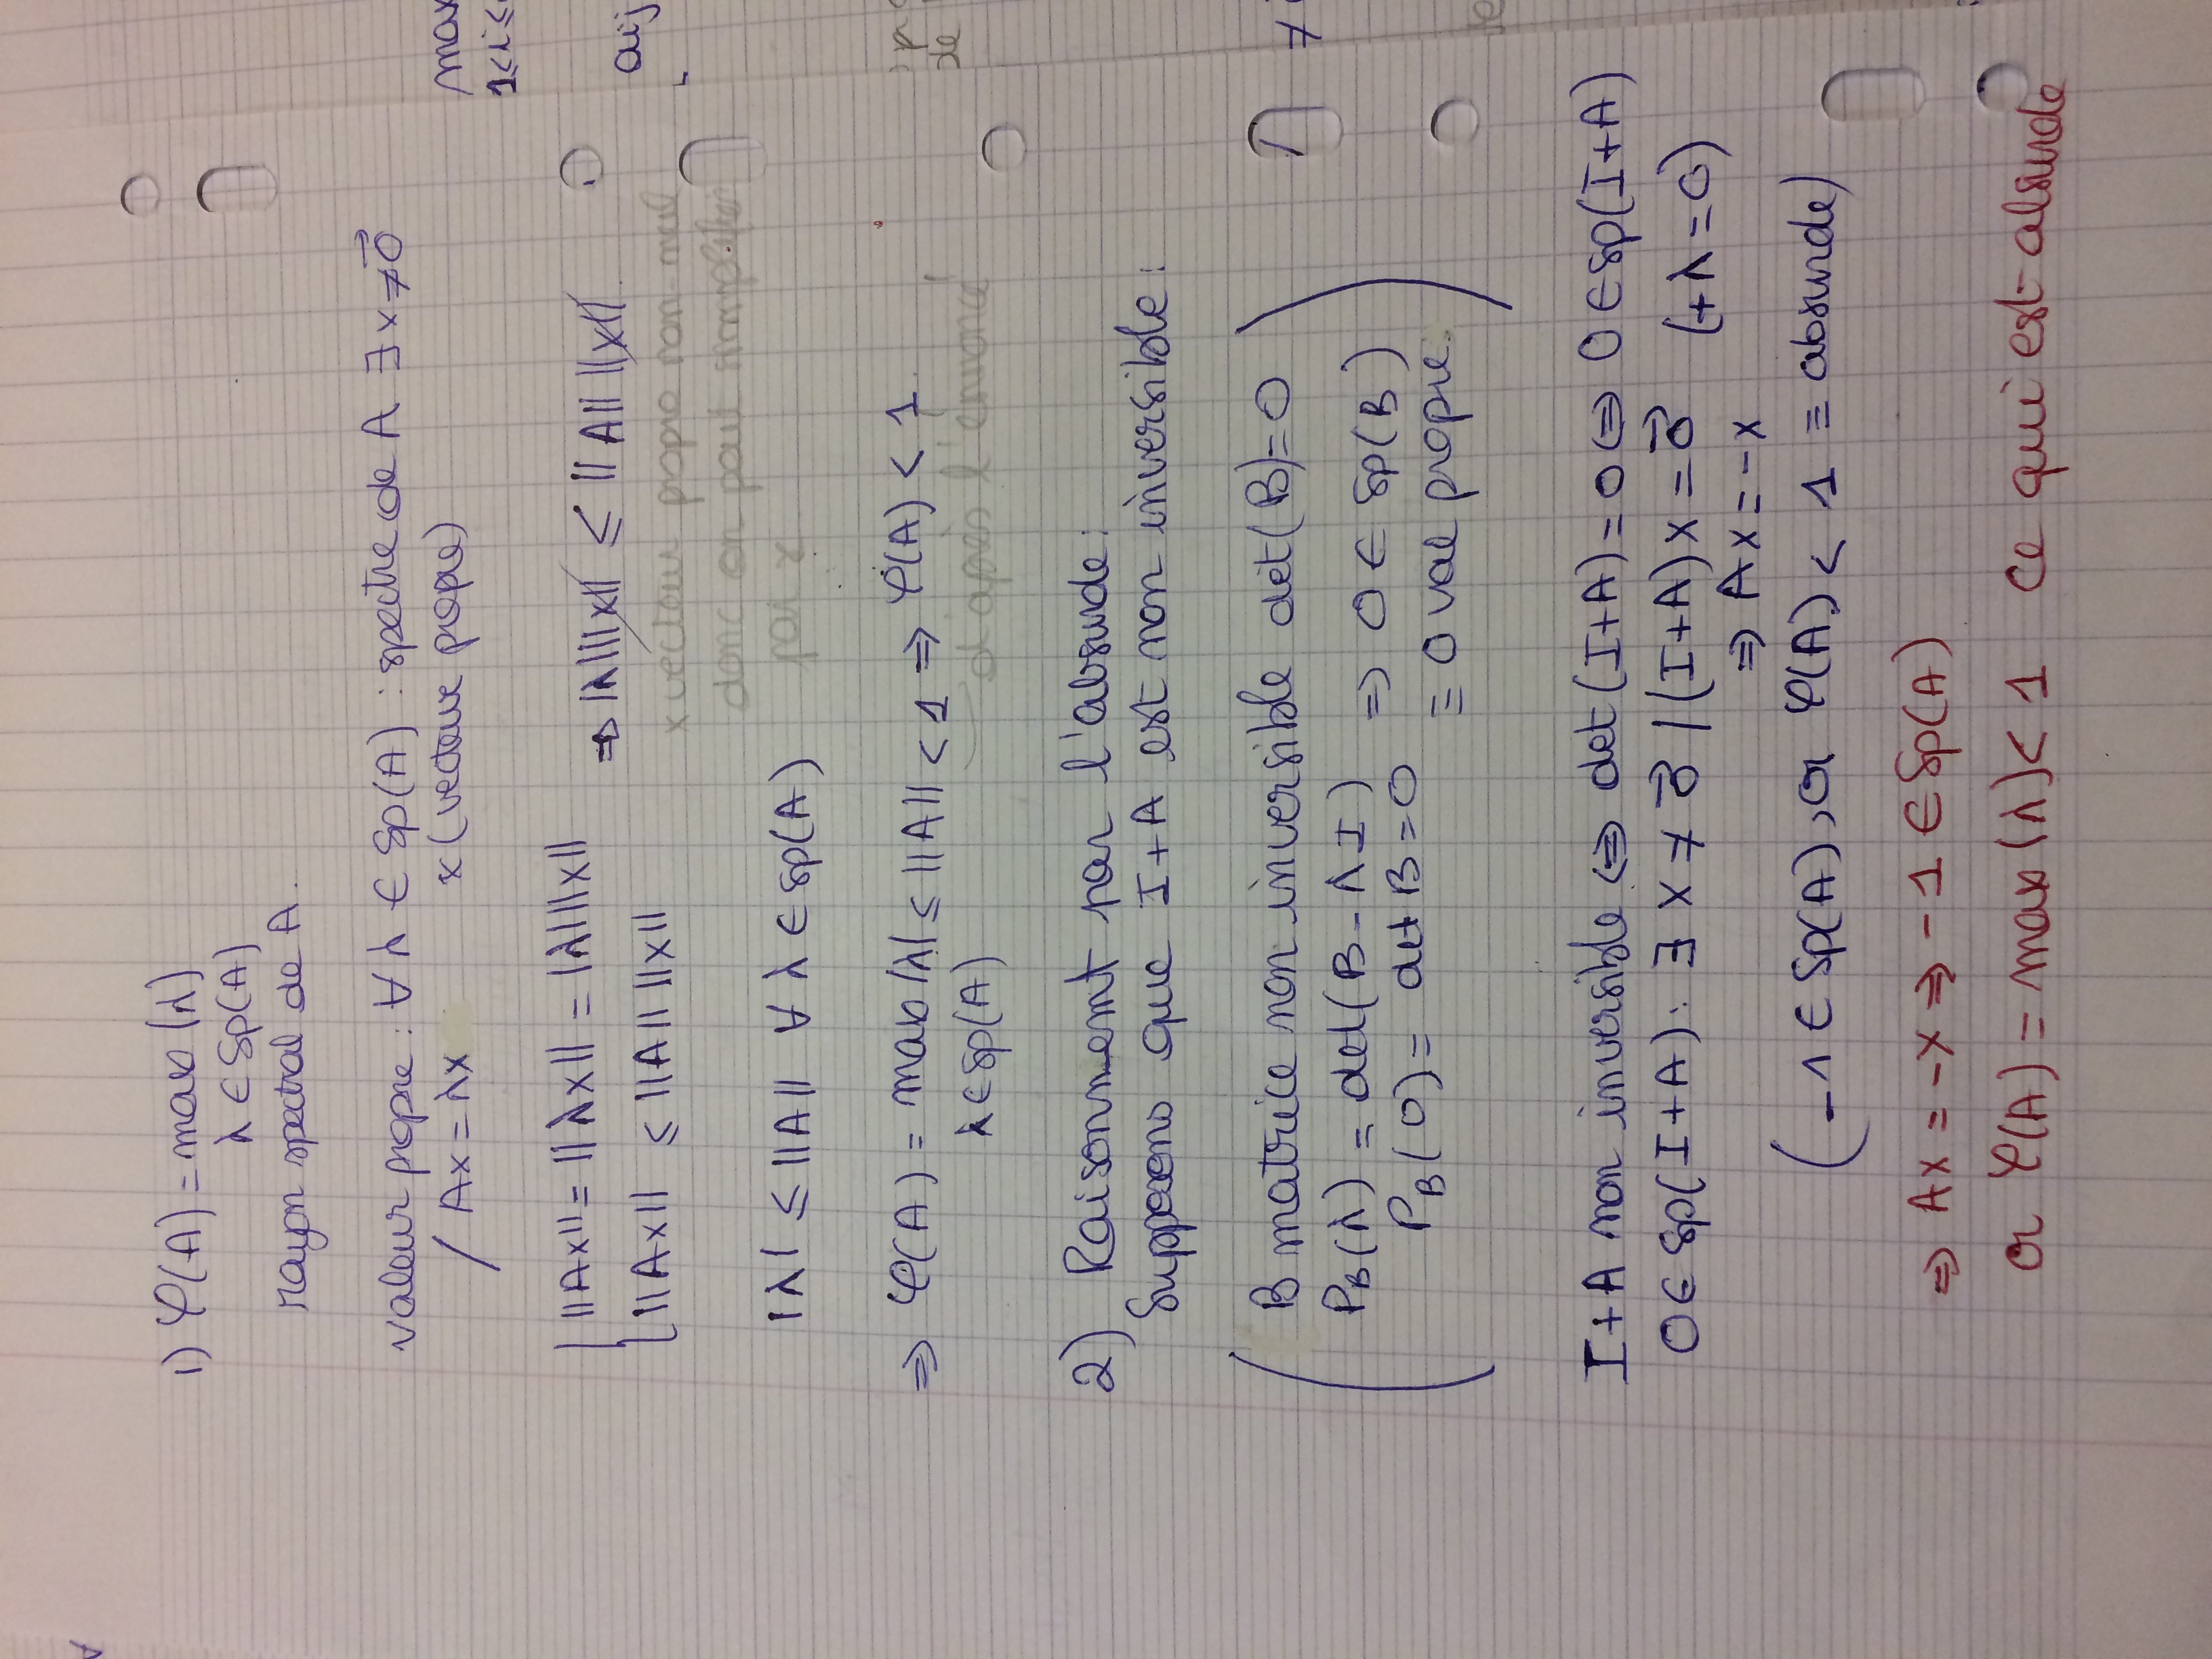 1) φ(A) = max |λ|
λ ∈ Sp(A)
rayon spectral de A.
valeur propre : ∀ λ ∈ Sp(A) : spectre de A ∃ x ≠ 0⃗
/ Ax = λx x (vecteur propre)
||Ax|| = ||λx|| = |λ| ||x||
||Ax|| ≤ ||A|| ||x||
⇒ |λ| ||x|| ≤ ||A|| ||x||.
x vecteur propre non nul
donc on peut simplifier
par x
|λ| ≤ ||A|| ∀ λ ∈ Sp(A)
⇒ φ(A) = max |λ| ≤ ||A|| < 1 ⇒ φ(A) < 1.
λ ∈ Sp(A) d'après l'énoncé
2) Raisonnement par l'absurde :
Supposons que I+A est non inversible :
B matrice non inversible det(B) = 0
P_B(λ) = det(B - λI)
P_B(0) = det B = 0
⇒ 0 ∈ Sp(B)
≡ 0 val propre.
I+A non inversible ⇔ det(I+A) = 0 ⇔ 0 ∈ Sp(I+A)
0 ∈ Sp(I+A) : ∃ x ≠ 0⃗ / (I+A)x = 0⃗ (+λ = 0)
⇒ Ax = -x
(-1 ∈ Sp(A), or φ(A) < 1 ≡ absurde)
⇒ Ax = -x ⇒ -1 ∈ Sp(A)
or φ(A) = max |λ| < 1 ce qui est absurde
max
1≤i≤
aij
de
≠